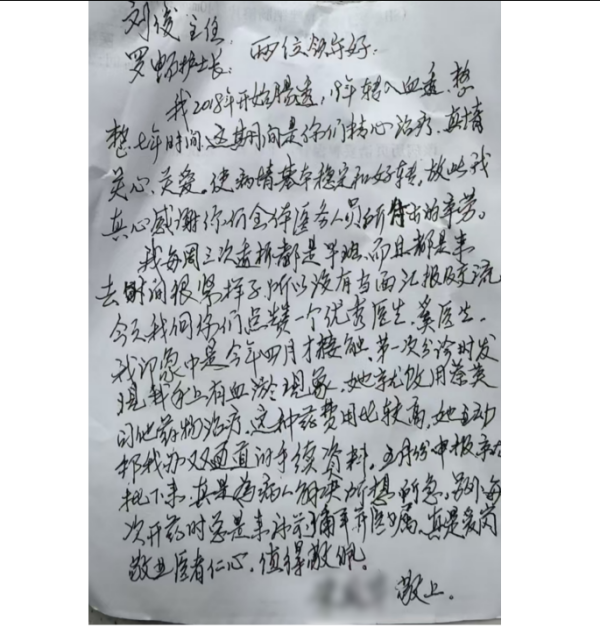 刘俊主任
罗畅护士长:两位领导好:
我2018年开始腹透,19年转入血透,整
整七年时间。这期间是你们精心治疗、真情
关心、关爱。使病情基本稳定和好转,故此我
真心感谢你们全体医务人员所付出的辛劳。
我每周三次透析都是早班,而且都是来
去时间很紧样子,所以没有当面汇报及交流
今天我向你们点赞一个优秀医生,奚医生。
我印象中是今年四月才接触,第一次分诊时发
现我手上有血淤现象,她就改用萘莫
司他药物治疗。这种药费用比较高,她主动
帮我办双通道的手续资料。五月份申报就
批下来,真是为病人解决所想所急。另外每
次开药时总是来床前了解并医嘱,真是爱岗
敬业医者仁心,值得敬佩。
敬上。